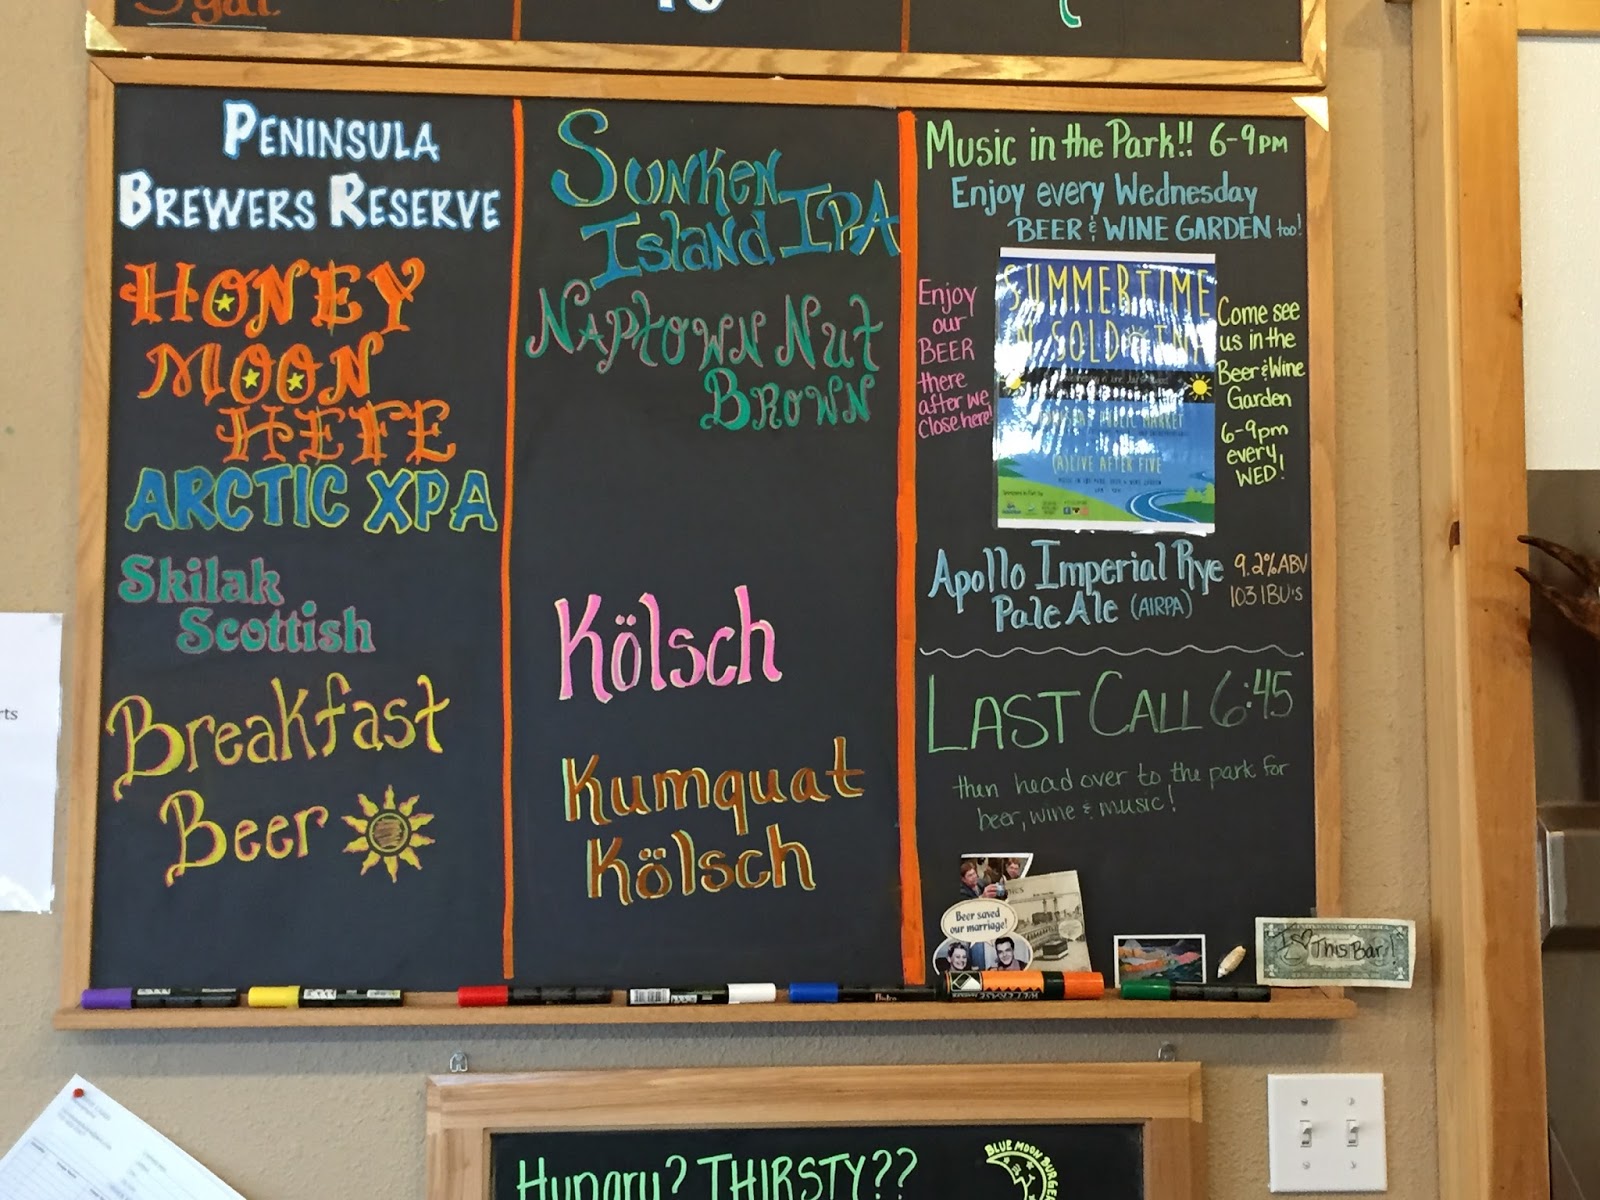 PENINSULA
BREWERS RESERVE
HONEY
MOON
HEFE
ARCTIC XPA
Skilak
Scottish
Breakfast
Beer
SUNKEN
ISLAND IPA
NAPTOWN NUT
BROWN
Kölsch
Kumquat
Kölsch
Music in the Park!! 6-9PM
Enjoy every Wednesday
BEER & WINE GARDEN too!
Enjoy
our
BEER
there
after we
close here!
SUMMERTIME
IN SOLDOTNA
PUBLIC MARKET
(A)LIVE AFTER FIVE
Come see
us in the
Beer & Wine
Garden
6-9pm
every
WED!
Apollo Imperial Rye
Pale Ale (AIRPA)
9.2% ABV
103 IBU's
LAST CALL 6:45
then head over to the park for
beer, wine & music!
Beer saved
our marriage!
I
This Bar!
rts
Hungry? THIRSTY??
BLUE MOON BURGE